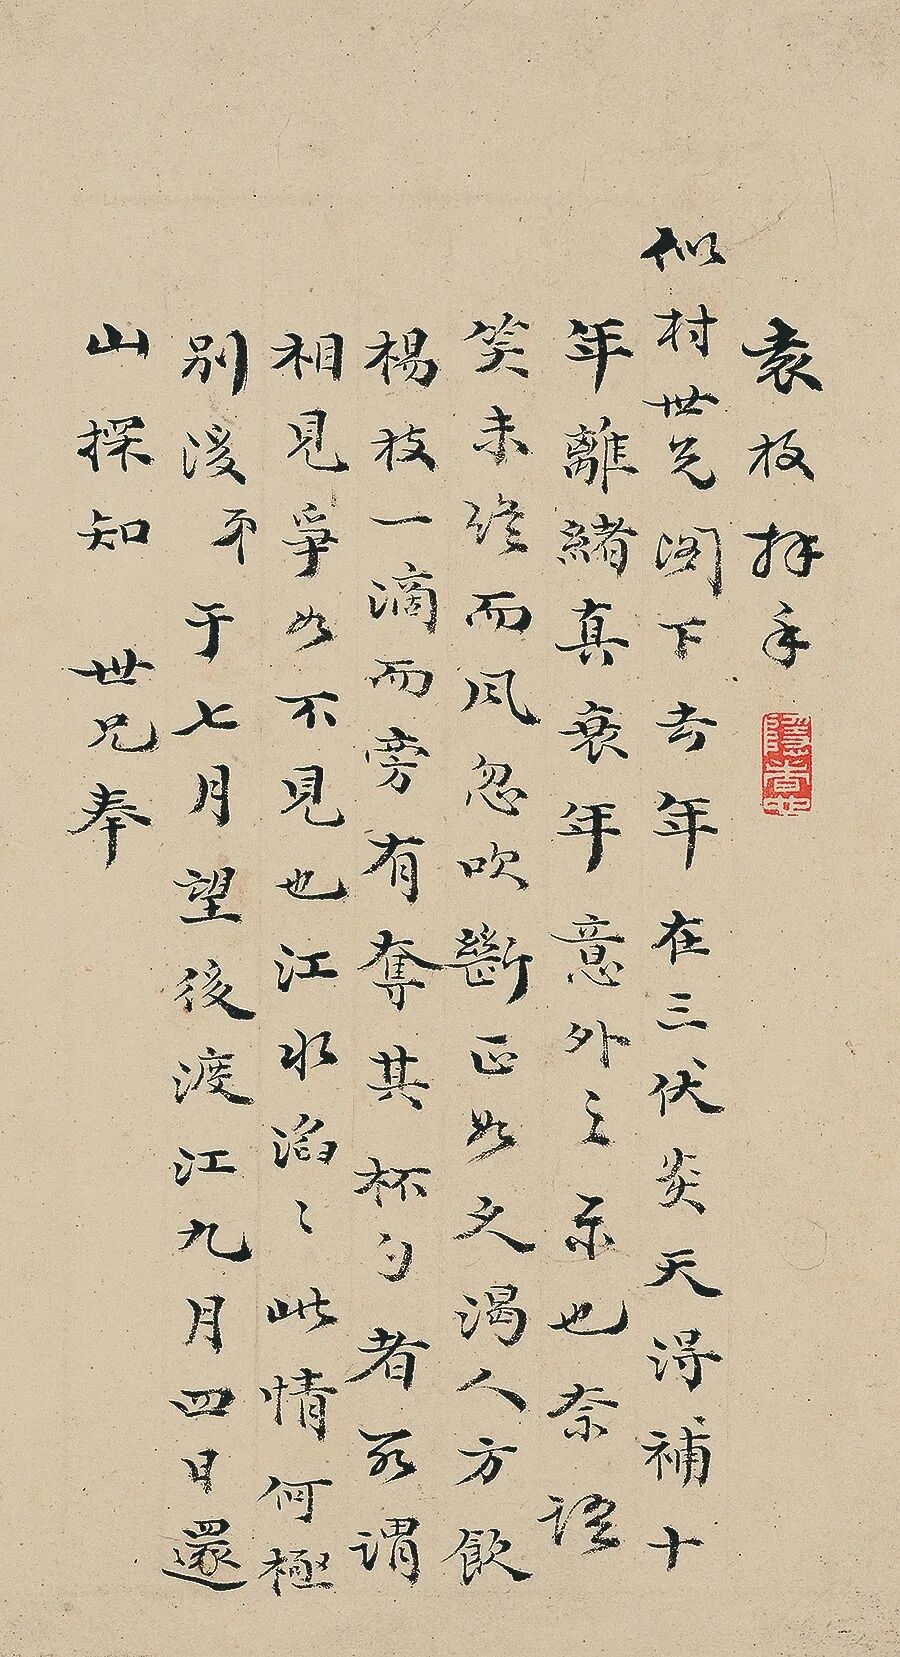 袁枚拜手
似村世兄閣下去年在三伏炎天得補十
年離緒真衰年意外之樂也奈語
笑未終而風忽吹斷正如久渴人方飲
楊枝一滴而旁有奪其杯勺者所謂
相見爭如不見也江水滔〻此情何極
別後弟于七月望後渡江九月四日還
山探知 世兄奉